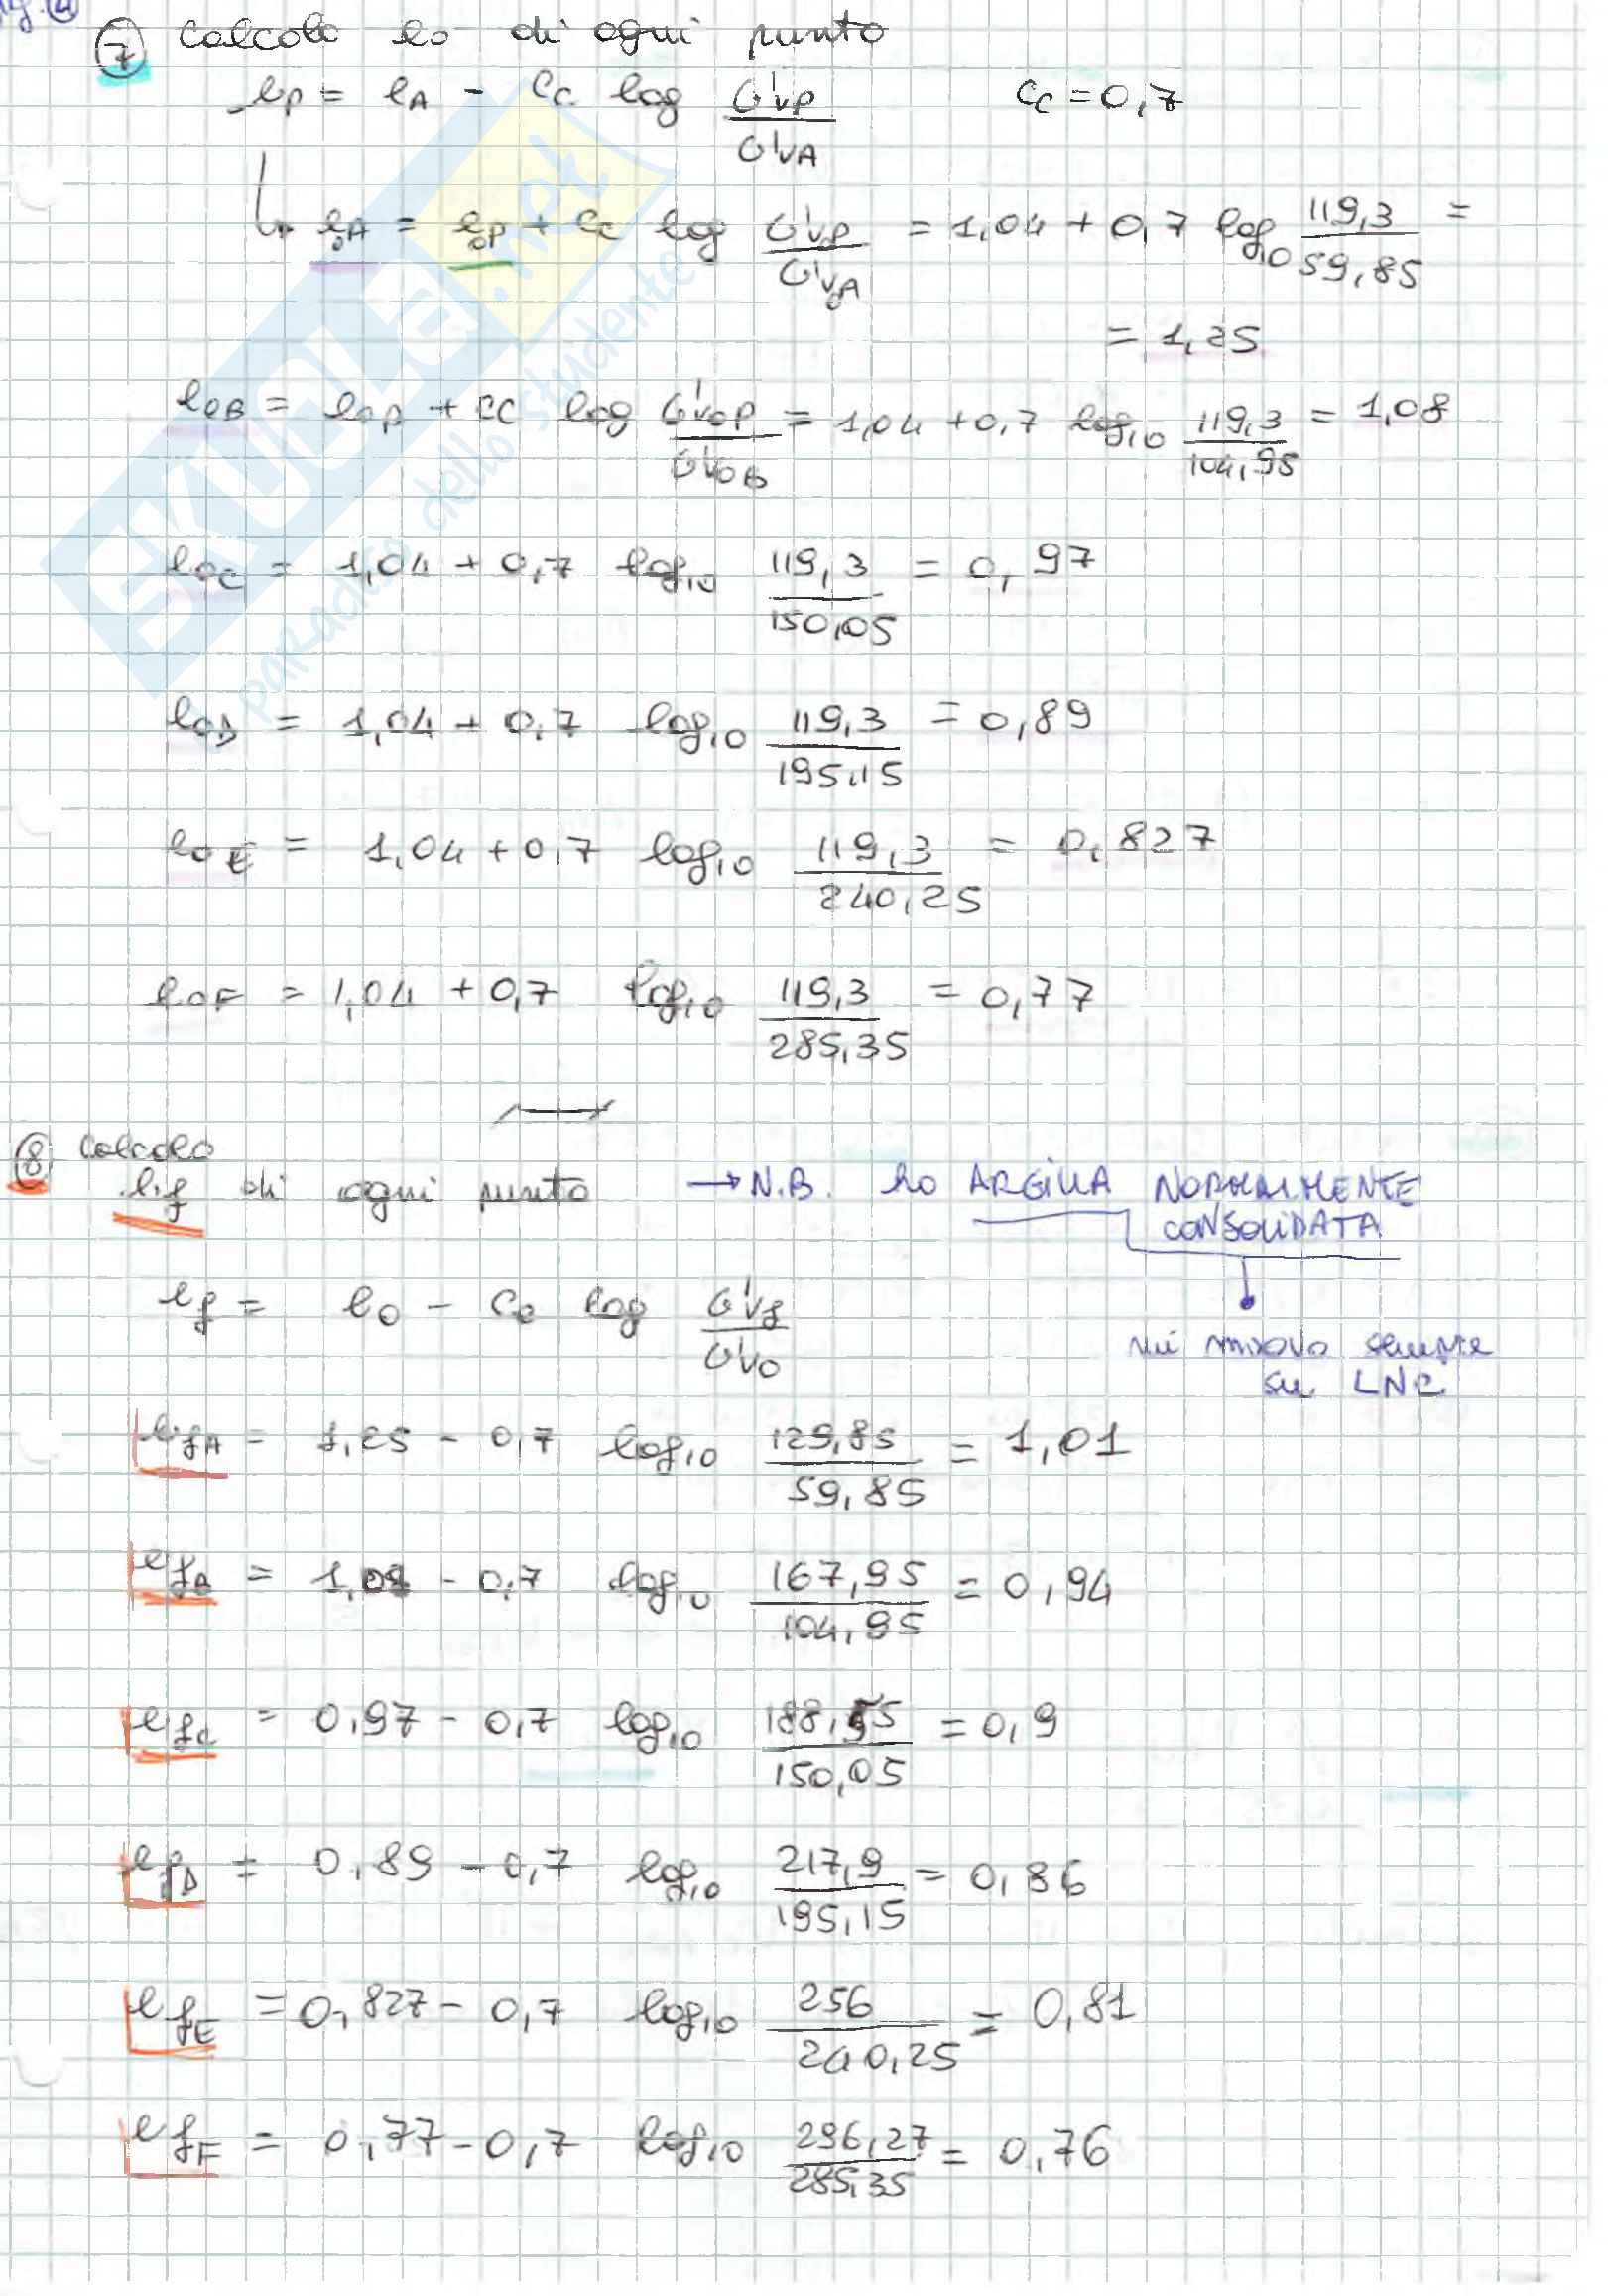 ⑦ Calcolo e₀ di ogni punto
eP = eA - Cc log σ'vP / σ'vA   Cc = 0,7
↳ e₀A = e₀P + Cc log σ'vP / σ'v₀A = 1,04 + 0,7 log₁₀ 119,3 / 59,85 =
= 1,25
e₀B = e₀P + Cc log σ'v₀P / σ'v₀B = 1,04 + 0,7 log₁₀ 119,3 / 104,95 = 1,08
e₀C = 1,04 + 0,7 log₁₀ 119,3 / 150,05 = 0,97
e₀D = 1,04 + 0,7 log₁₀ 119,3 / 195,15 = 0,89
e₀E = 1,04 + 0,7 log₁₀ 119,3 / 240,25 = 0,827
e₀F = 1,04 + 0,7 log₁₀ 119,3 / 285,35 = 0,77
⑧ Calcolo
ef di ogni punto → N.B. ho ARGILLA NORMALMENTE
CONSOLIDATA
ef = e₀ - Cc log σ'vf / σ'v₀
mi muovo sempre
su LNC
efA = 1,25 - 0,7 log₁₀ 129,85 / 59,85 = 1,01
= 1,08 - 0,7 log₁₀ 167,95 / 104,95 = 0,94
efC = 0,97 - 0,7 log₁₀ 188,55 / 150,05 = 0,9
efD = 0,89 - 0,7 log₁₀ 217,9 / 195,15 = 0,86
efE = 0,827 - 0,7 log₁₀ 256 / 240,25 = 0,81
efF = 0,77 - 0,7 log₁₀ 296,27 / 285,35 = 0,76
SKUOLA.net
paradiso dello studente